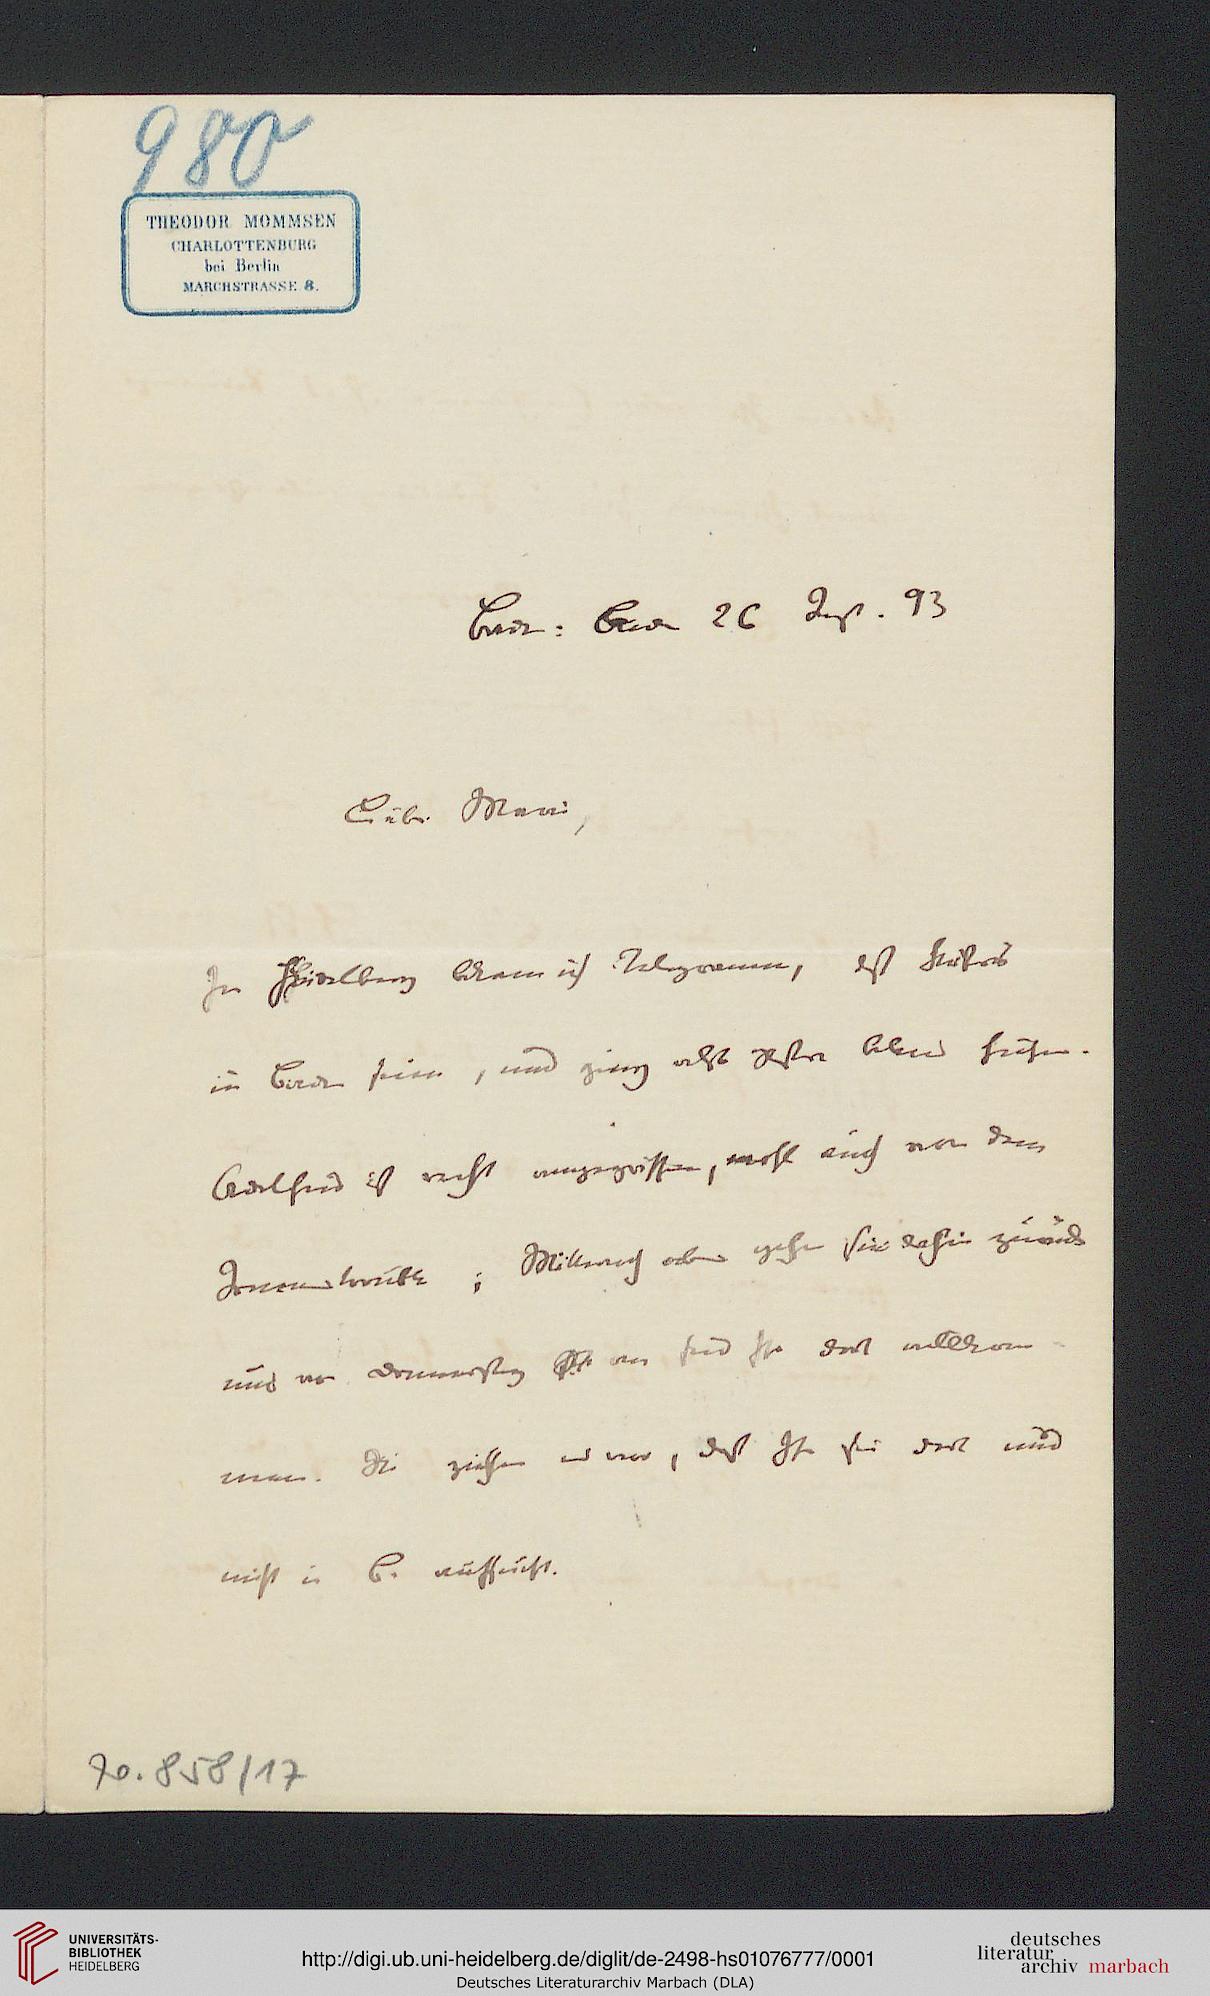 980
THEODOR MOMMSEN
CHARLOTTENBURG
bei Berlin
MARCHSTRASSE 8.
Baden-Baden 26 Sept. 93
Liebe Marie,
In Heidelberg bekam ich Telegramm, daß
in Baden seien, und ging also gestern Abend hieher.
Adelheid ist recht angegriffen, wohl auch von dem
; Mittwoch aber gehen sie dahin zurück
und von Donnerstag an seid Ihr dort willkom-
men. Sie ziehen es vor, daß Ihr sie dort und
nicht in B. aufsucht.
70.858/17
UNIVERSITÄTS-
BIBLIOTHEK
HEIDELBERG
http://digi.ub.uni-heidelberg.de/diglit/de-2498-hs01076777/0001
Deutsches Literaturarchiv Marbach (DLA)
deutsches
literatur
archiv marbach